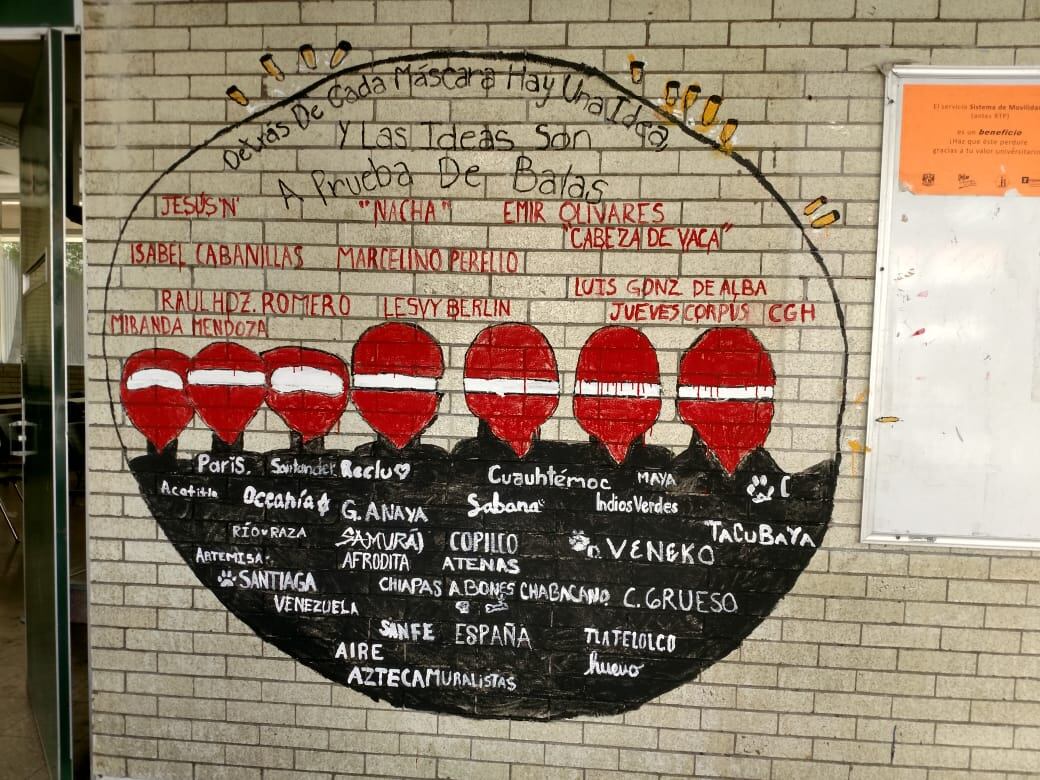 Detrás De Cada Máscara Hay Una Idea
Y Las Ideas Son
A Prueba De Balas
JESÚS "N" "NACHA" EMIR OLIVARES
"CABEZA DE VACA"
ISABEL CABANILLAS MARCELINO PERELLO
LUIS GONZ DE ALBA
RAUL HDZ. ROMERO LESVY BERLIN JUEVES CORPUS CGH
MIRANDA MENDOZA
París. Santander Reclu Cuauhtémoc MAYA
Acatitla Occanía G. ANAYA Sabana Indios Verdes
RÍO RAZA SAMURÁJ COPILCO TACUBAYA
ARTEMISA AFRODITA ATENAS VENEKO
SANTIAGA CHIAPAS ABONES CHABACANO C. GRUESO
VENEZUELA
SANFE ESPAÑA TLATELOLCO
AIRE huevo
AZTECA MURALISTAS
El servicio Sistema de Movilidad
(antes RTP)
es un beneficio
¡Haz que éste perdure
gracias a tu valor universitario